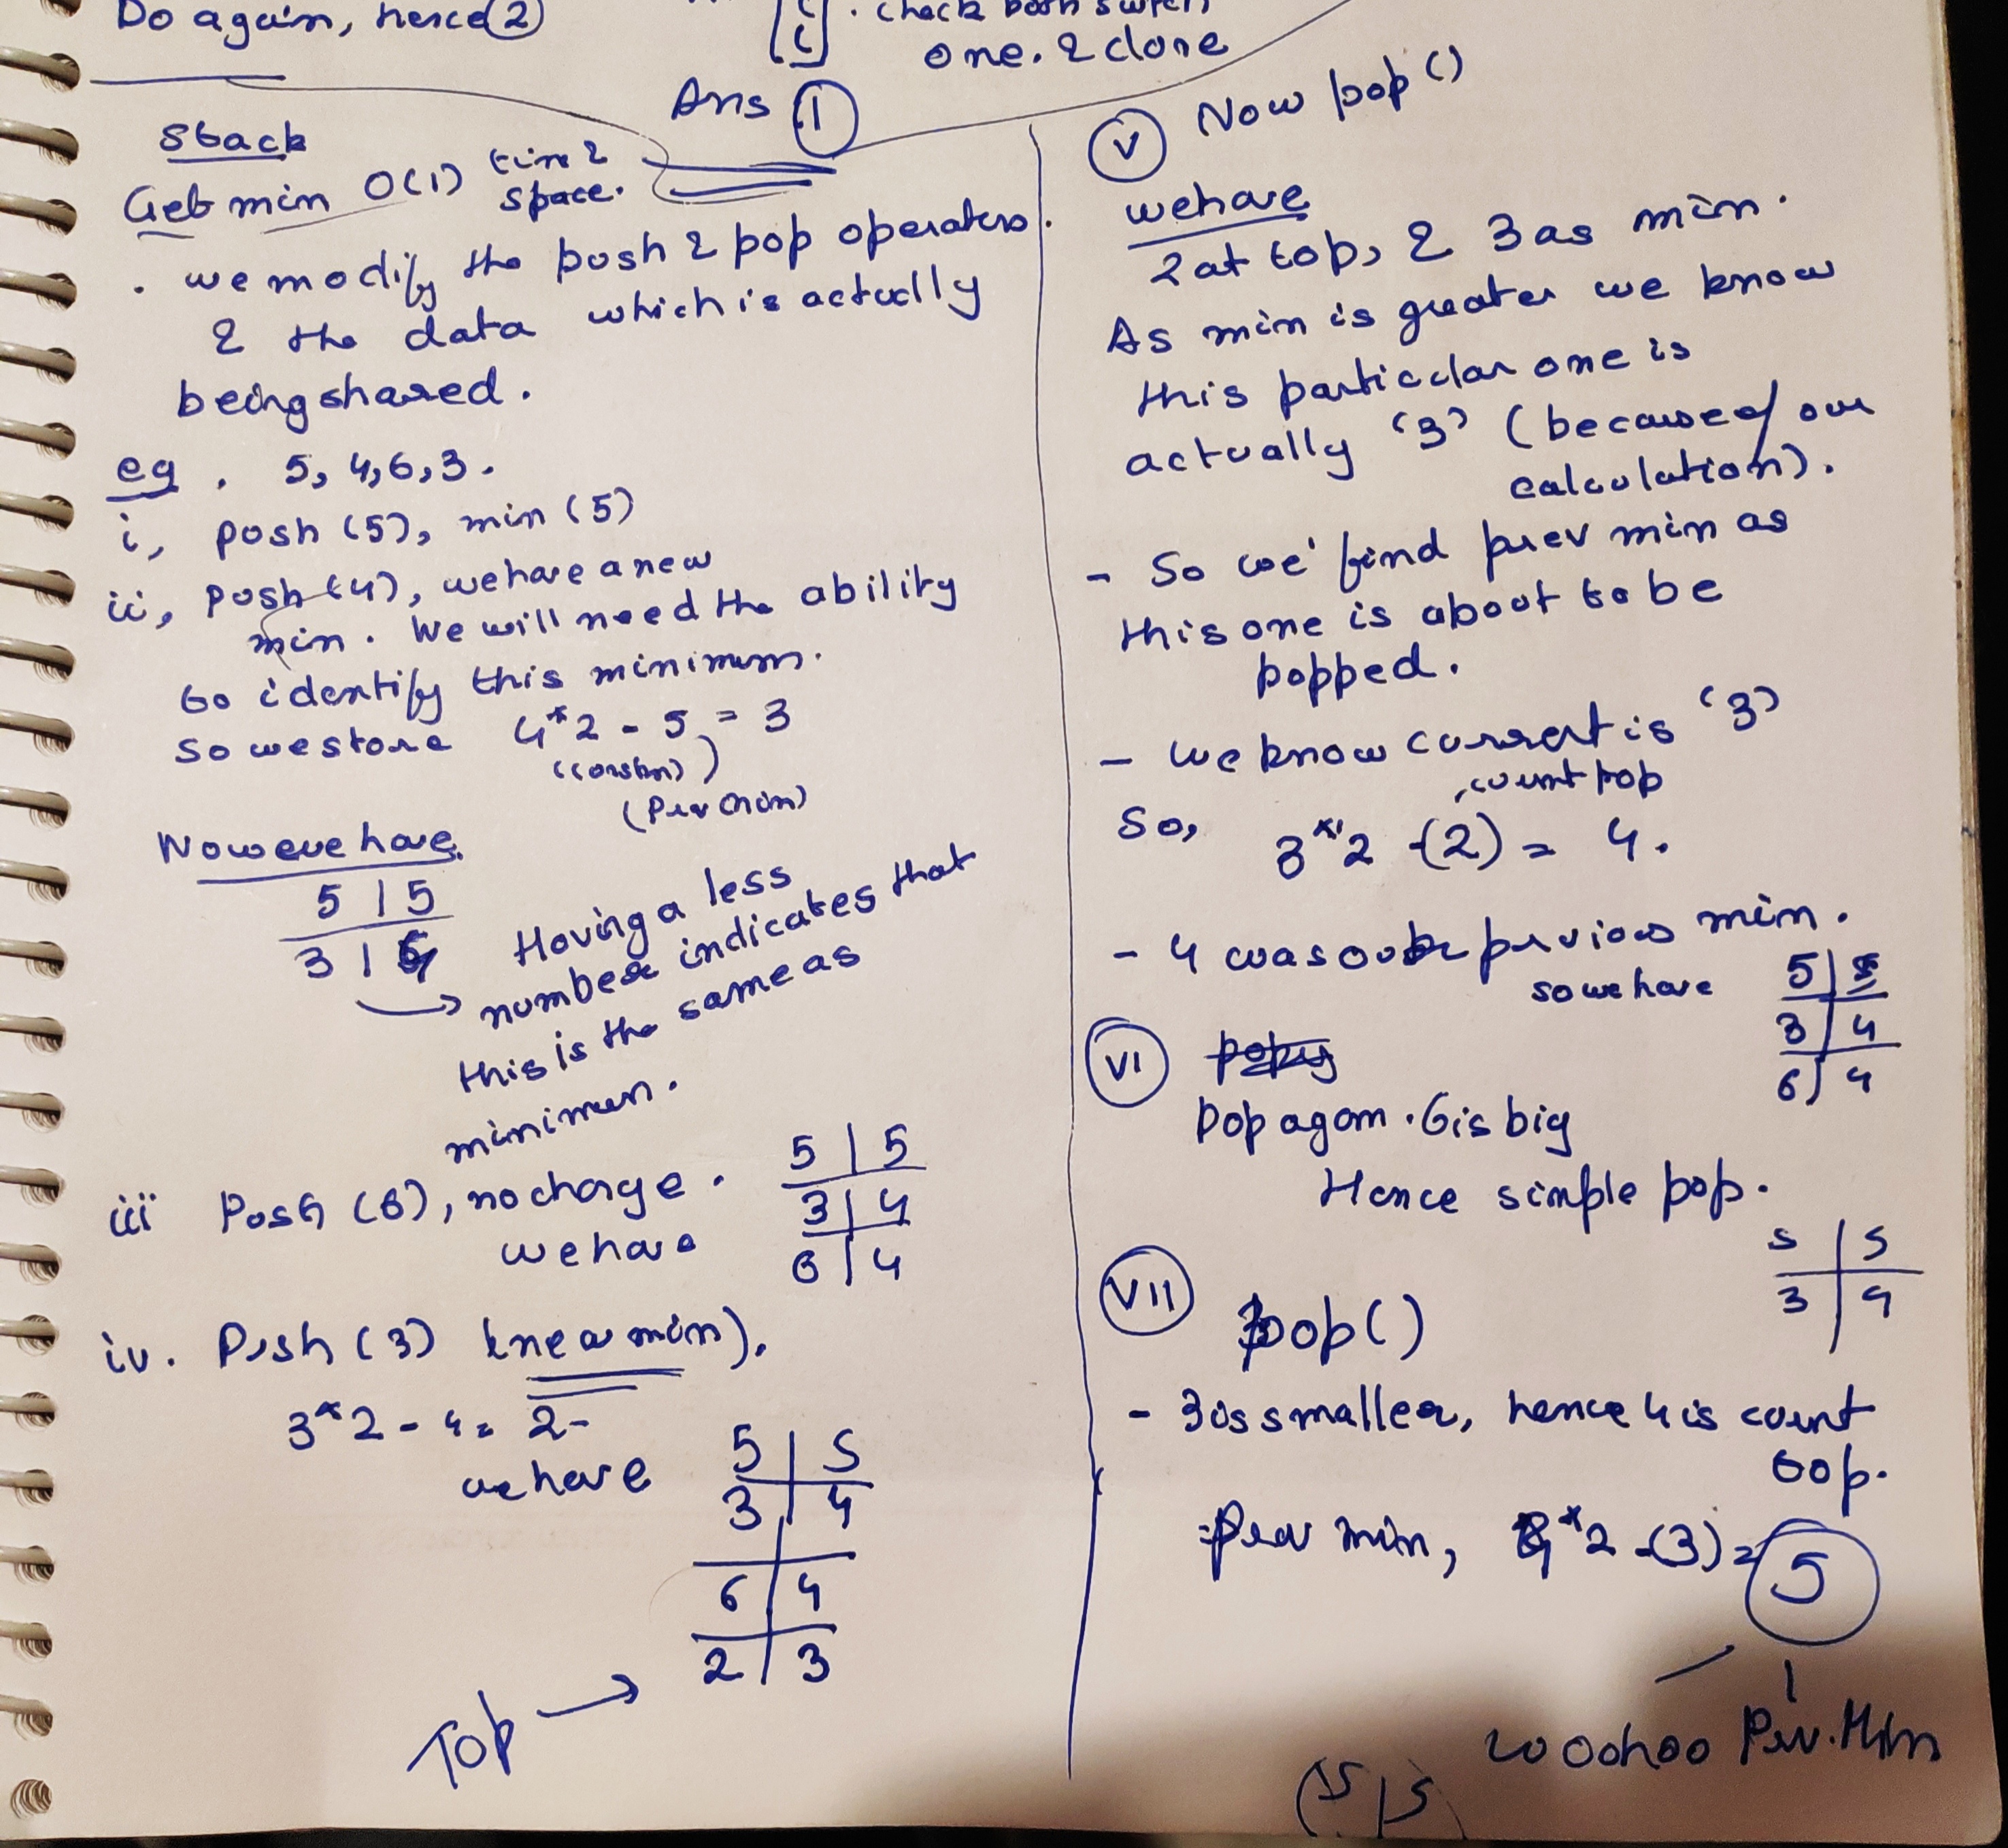 Do again, hence 2
. check both
one. & clone
Ans 1
Stack
Get min O(1) time &
space.
. we modify the push & pop operators.
& the data which is actually
being shared.
eg . 5, 4, 6, 3.
i, push (5), min (5)
ii, push (4), we have a new
min. We will need the ability
to identify this minimum.
So we store 4*2 - 5 = 3
(Prev min)
Now we have
5 | 5
3 | 4
Having a less
number indicates that
this is the same as
minimum.
iii Push (6), no change.
we have
5 | 5
3 | 4
6 | 4
iv. Push (3) (new min).
3*2 - 4 = 2
we have
5 | 5
3 | 4
6 | 4
2 | 3
Top →
V Now pop ()
we have
2 at top, & 3 as min.
As min is greater we know
this particular one is
actually '3' (because of our
calculation).
- So we find prev min as
this one is about to be
popped.
- we know current is '3'
curnt top
So, 3*2 -(2) = 4.
- 4 was our previous min.
so we have
5 | 5
3 | 4
6 | 4
VI
Pop again. 6 is big
Hence simple pop.
5 | 5
3 | 4
VII pop()
- 3 is smaller, hence 4 is curnt
top.
- Prev min, 4*2 -(3) = 5
woohoo Prev. Min
(5|5)